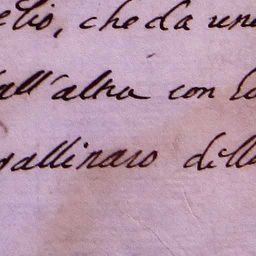 elio, che da una
all'altra con lo
gallinaro dello